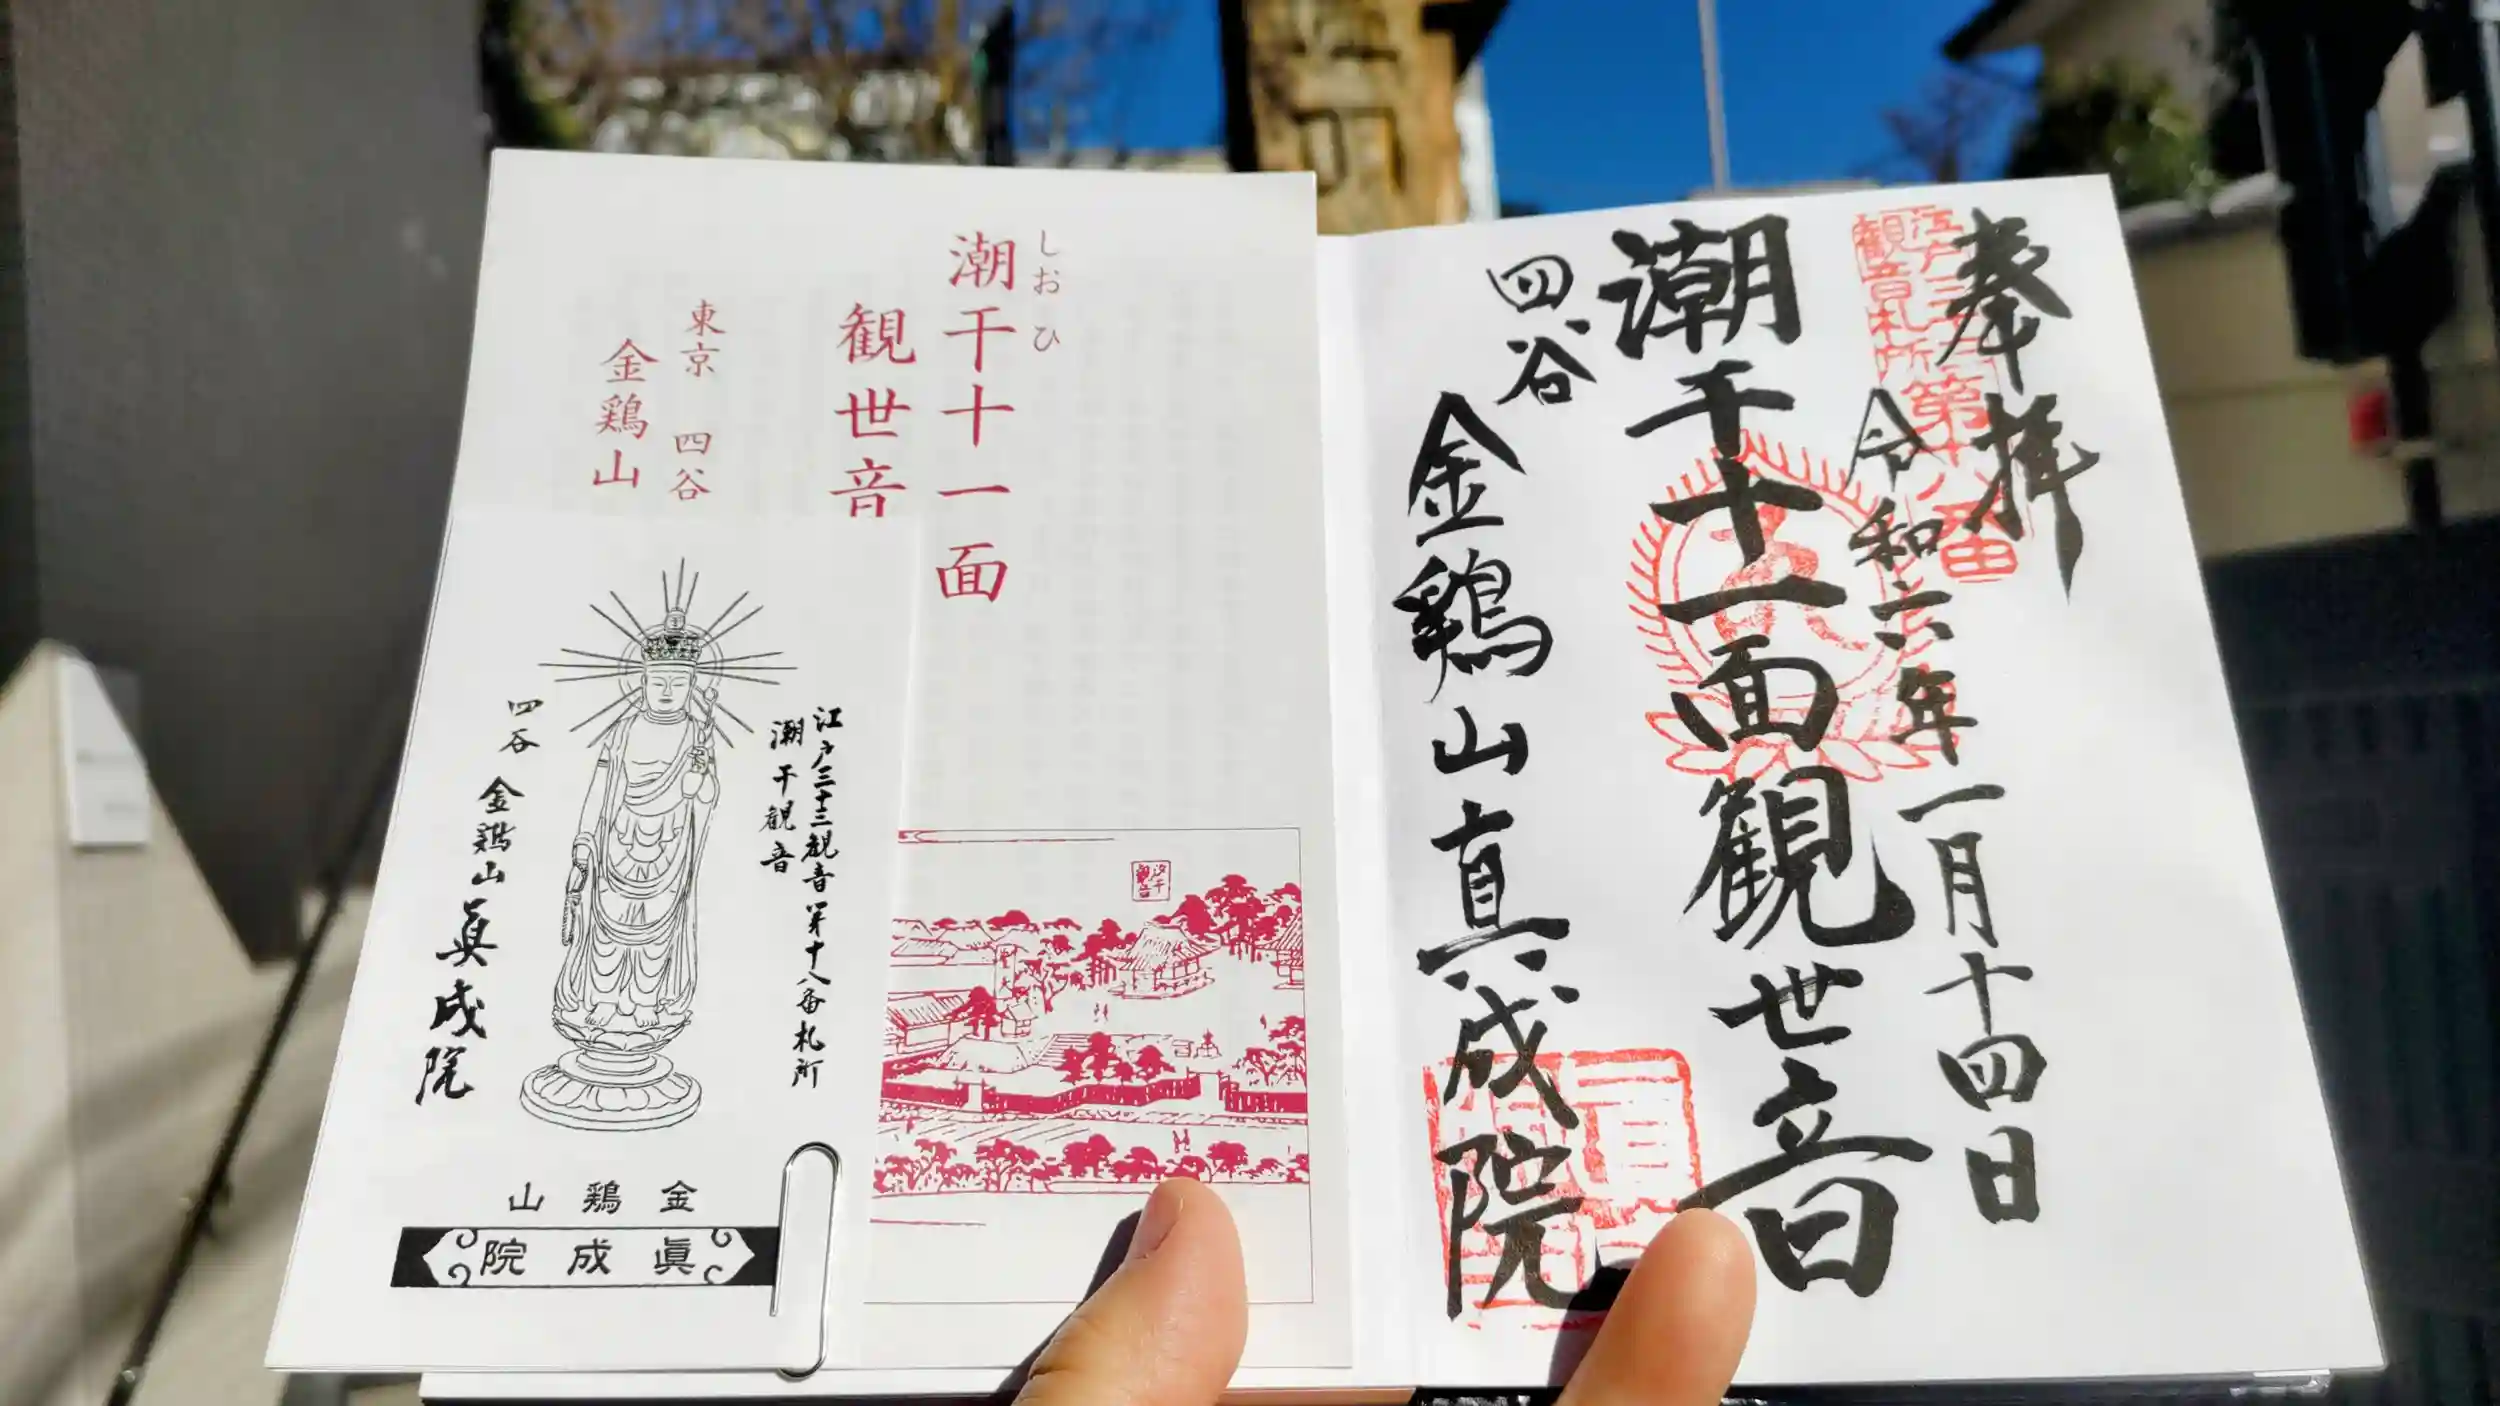 しおひ
潮干十一面
観世音
東京 四谷
金鶏山
江戸三十三観音第十八番札所
潮干観音
四谷 金鶏山 眞成院
金鶏山
眞成院
汐干
観音
奉拝
江戸三十三
観音札所
第十八番
令和六年一月十四日
潮干十一面観世音
四谷
金鶏山真成院